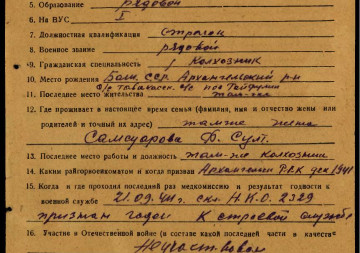 5. Образование рядовой
6. На ВУС I
7. Должностная квалификация стрелок
8. Военное звание рядовой
9. Гражданская специальность колхозник
10. Место рождения Баш. сср. Архангельский р-н
11. Последнее место жительства там-же
12. Где проживает в настоящее время семья (фамилия, имя и отчество жены или
родителей и точный их адрес) там же жена
Самсуарова Б. Султ.
13. Последнее место работы и должность там-же колхозник
14. Каким райгорвоенкоматом и когда призван Архангельск РВК 1941
15. Когда и где проходил последний раз медкомиссию и результат годности к
военной службе 21.09.44г. Н.К.О. 2329
признан годен к строевой службе
16. Участие в Отечественной войне (в составе какой последней части в качестве
Не участвовал